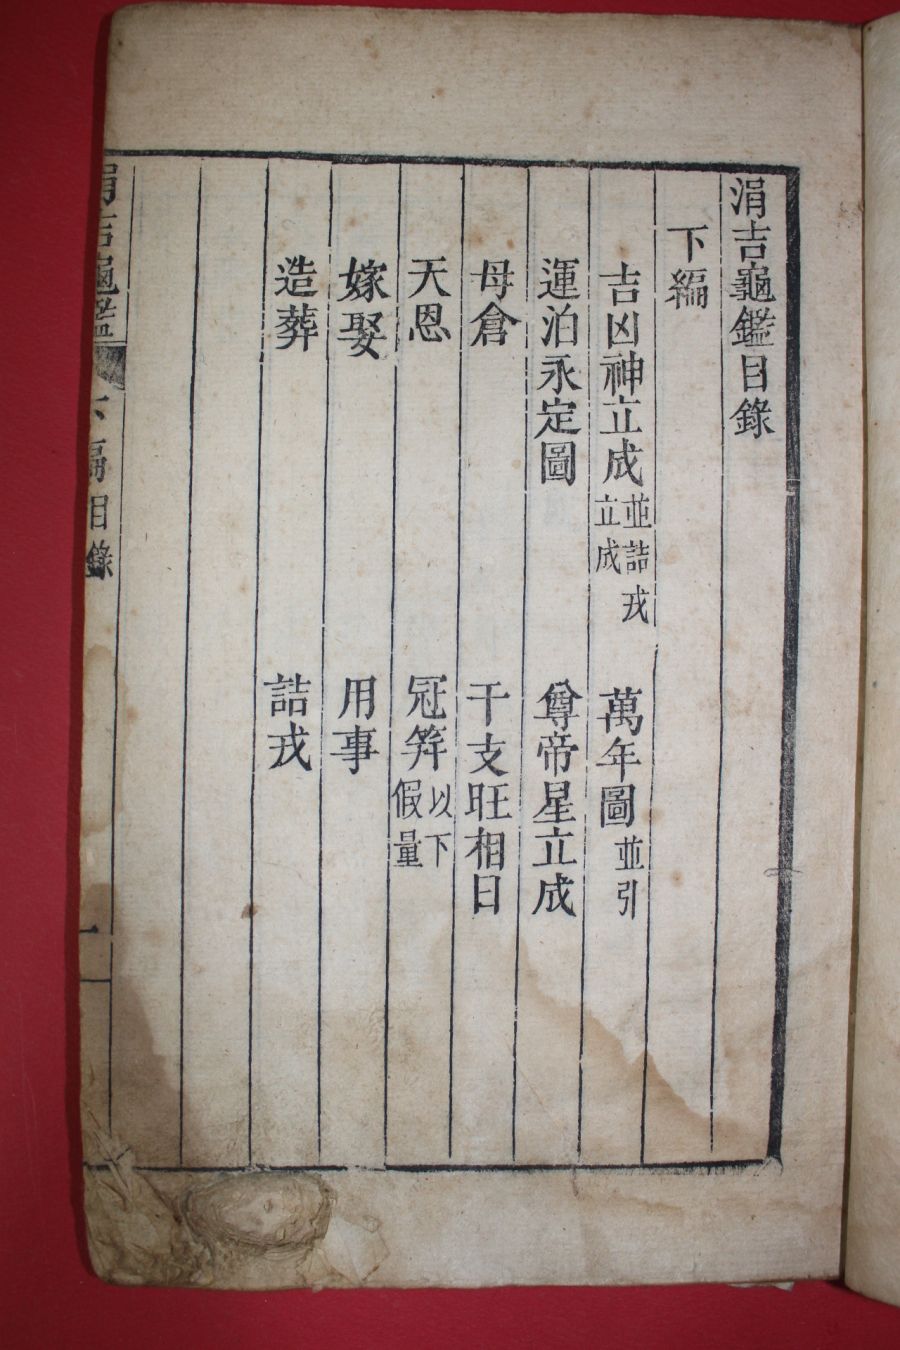 涓吉龜鑑目錄
下編
吉凶神立成 並詰戎立成 萬年圖 並引
運泊永定圖 尊帝星立成
母倉 干支旺相日
天恩 冠筓 以下假量
嫁娶 用事
造葬 詰戎
涓吉龜鑑 下編目錄 一